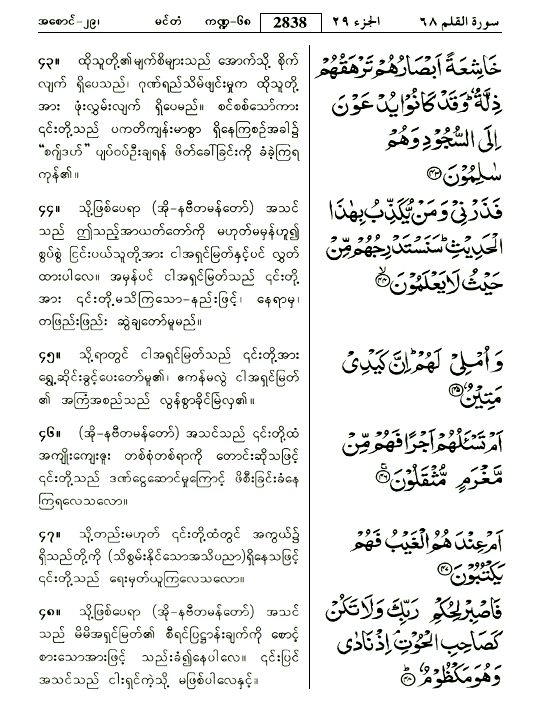 အစောင်-၂၉၊ မင်တံ ကဏ္ဍ-၆၈ 2838 الجزء ٢٩ سورة القلم ٦٨
၄၃။ ထိုသူတို့၏မျက်စိများသည် အောက်သို့ စိုက်
လျက် ရှိပေသည်၊ ဂုဏ်ရည်သိမ်ဖျင်းမှုက ထိုသူတို့
အား ဖုံးလွှမ်းလျက် ရှိပေမည်။ စင်စစ်သော်ကား
၎င်းတို့သည် ပကတိကျန်းမာစွာ ရှိနေကြစဉ်အခါ၌
“စဂျ်ဒဟ်” ပျပ်ဝပ်ဦးချရန် ဖိတ်ခေါ်ခြင်းကို ခံခဲ့ကြရ
ကုန်၏။
خَاشِعَةً اَبْصَارُهُمْ تَرْهَقُهُمْ
ذِلَّةٌ ؕ وَقَدْ كَانُوْا يُدْعَوْنَ
اِلَى السُّجُوْدِ وَهُمْ
سٰلِمُوْنَ ﴿۴۳﴾
၄၄။ သို့ဖြစ်ပေရာ (အို-နဗီတမန်တော်) အသင်
သည် ဤသည့်အာယတ်တော်ကို မဟုတ်မမှန်ဟူ၍
စွပ်စွဲ ငြင်းပယ်သူတို့အား ငါအရှင်မြတ်နှင့်ပင် လွှတ်
ထားပါလေ။ အမှန်ပင် ငါအရှင်မြတ်သည် ၎င်းတို့
အား ၎င်းတို့မသိကြသော-နည်းဖြင့်၊ နေရာမှ၊
တဖြည်းဖြည်း ဆွဲချတော်မူမည်။
فَذَرْنِيْ وَمَنْ يُّكَذِّبُ بِهٰذَا
الْحَدِيْثِ ؕ سَنَسْتَدْرِجُهُمْ مِّنْ
حَيْثُ لَا يَعْلَمُوْنَ ﴿۴۴﴾
၄၅။ သို့ရာတွင် ငါအရှင်မြတ်သည် ၎င်းတို့အား
ရွှေ့ဆိုင်းခွင့်ပေးတော်မူ၏၊ ဧကန်မလွဲ ငါအရှင်မြတ်
၏ အကြံအစည်သည် လွန်စွာခိုင်မြဲလှ၏။
وَاُمْلِيْ لَهُمْ ؕ اِنَّ كَيْدِيْ
مَتِيْنٌ ﴿۴۵﴾
၄၆။ (အို-နဗီတမန်တော်) အသင်သည် ၎င်းတို့ထံ
အကျိုးကျေးဇူး တစ်စုံတစ်ရာကို တောင်းဆိုသဖြင့်
၎င်းတို့သည် ဒဏ်ငွေဆောင်မှုကြောင့် ဖိစီးခြင်းခံနေ
ကြရလေသလော။
اَمْ تَسْـَٔلُهُمْ اَجْرًا فَهُمْ مِّنْ
مَّغْرَمٍ مُّثْقَلُوْنَ ﴿۴۶﴾
၄၇။ သို့တည်းမဟုတ် ၎င်းတို့ထံတွင် အကွယ်၌
ရှိသည်တို့ကို (သိစွမ်းနိုင်သောအသိပညာ)ရှိနေသဖြင့်
၎င်းတို့သည် ရေးမှတ်ယူကြလေသလော။
اَمْ عِنْدَهُمُ الْغَيْبُ فَهُمْ
يَكْتُبُوْنَ ﴿۴۷﴾
၄၈။ သို့ဖြစ်ပေရာ (အို-နဗီတမန်တော်) အသင်
သည် မိမိအရှင်မြတ်၏ စီရင်ပြဋ္ဌာန်းချက်ကို စောင့်
စားသောအားဖြင့် သည်းခံ၍နေပါလေ။ ၎င်းပြင်
အသင်သည် ငါးရှင်ကဲ့သို့ မဖြစ်ပါလေနှင့်။
فَاصْبِرْ لِحُكْمِ رَبِّكَ وَلَا تَكُنْ
كَصَاحِبِ الْحُوْتِ ۘ اِذْ نَادٰى
وَهُوَ مَكْظُوْمٌ ﴿۴۸﴾